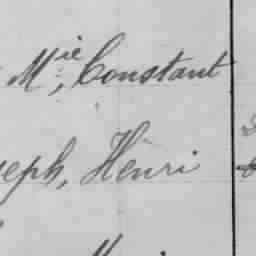 Mie, Constant
seph, Henri